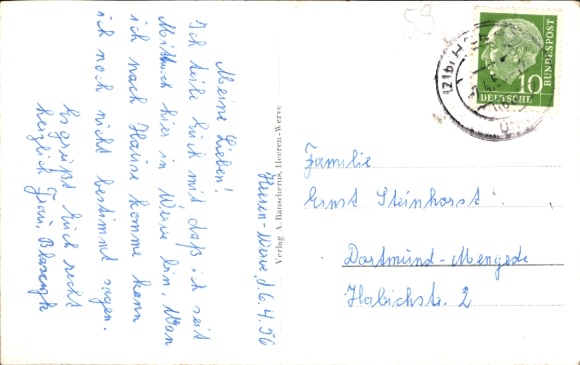 Heeren-Werve, d. 6.4.56
Meine Lieben!
Ich teile Euch mit daß ich seit
Mittwoch hier in Werve bin. Wan
ich nach Hause komme kann
ich noch nicht bestimmt sagen.
Es grüßt Euch recht
herzlich Frau
Verlag A. Banscherus, Heeren-Werve
59
10
DEUTSCHE
BUNDESPOST
(21b)
Familie
Ernst Steinhorst
Dortmund-Mengede
Habichstr. 2